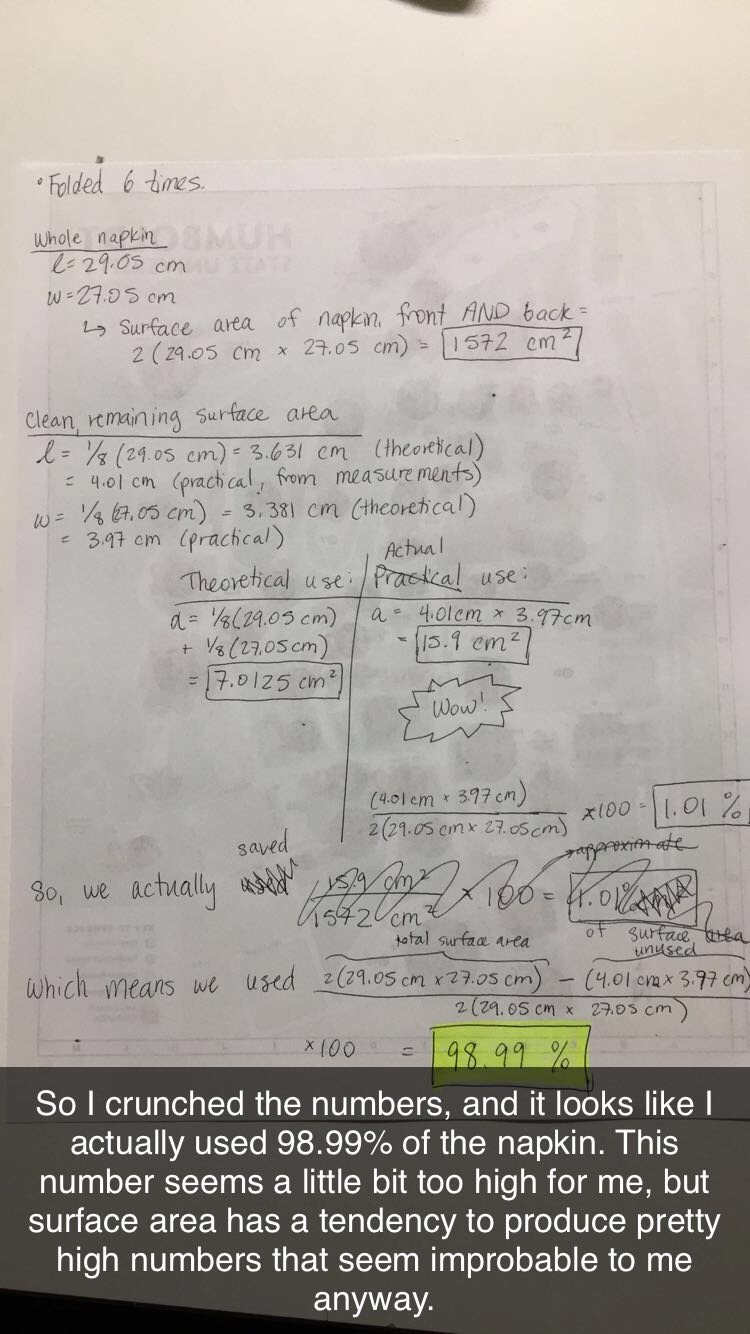 • Folded 6 times.
HUMBO
STATE UN
Whole napkin
l = 29.05 cm
w = 27.05 cm
↳ Surface area of napkin, front AND back =
2 (29.05 cm x 27.05 cm) = 1572 cm²
Clean, remaining surface area
l = 1/8 (29.05 cm) = 3.631 cm (theoretical)
= 4.01 cm (practical, from measurements)
w = 1/8 (27.05 cm) = 3.381 cm (theoretical)
= 3.97 cm (practical)
Actual
Theoretical use: Practical use:
a = 1/8 (29.05 cm)
+ 1/8 (27.05 cm)
= 7.0125 cm²
a = 4.01cm x 3.97cm
= 15.9 cm²
Wow!
(4.01 cm x 3.97 cm)
2(29.05 cm x 27.05 cm) x100 = 1.01 %
approximate
saved
So, we actually used 15.9 cm² / 1572 cm² x 100 = 1.01%
of surface area
unused
total surface area
which means we used 2(29.05 cm x 27.05 cm) − (4.01 cm x 3.97 cm)
2(29.05 cm x 27.05 cm)
x100 = 98.99 %
So I crunched the numbers, and it looks like I
actually used 98.99% of the napkin. This
number seems a little bit too high for me, but
surface area has a tendency to produce pretty
high numbers that seem improbable to me
anyway.